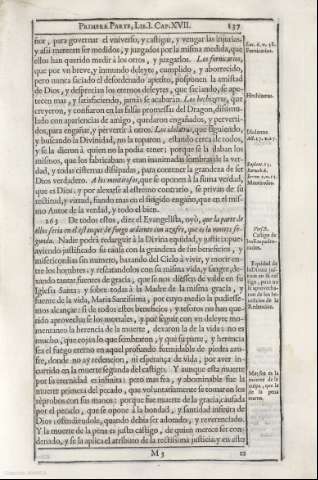 PRIMERA PARTE, LIB. I. CAP. XVII. 137
ñor, para governar el vniverso, y castigar, y vengar las injurias;
y assi merecen ser medidos, y juzgados por la misma medida, que
ellos han querido medir à los otros, y juzgarlos. Los fornicarios,
que por vn breve, y inmundo deleyte, cumplido, y aborrecido,
pero nunca saciado el desordenado apetito, posponen la amistad
de Dios, y desprecian los eternos deleytes, que saciando, se ape-
tecen mas, y satisfaciendo, jamàs se acabaràn. Los hechizeros, que
creyeron, y confiaron en las falsas promessas del Dragon, disimu-
lado con apariencias de amigo, quedaron engañados, y perverti-
dos, para engañar, y pervertir à otros. Los idolatras, que siguiendo,
y buscando la Divinidad, no la toparon, estando cerca de todos,
y se la dieron à quien no la podia tener; porque se la daban los
mismos, que los fabricaban, y eran inanimadas sombras de la ver-
dad, y
Dios verdadero. A los mentirosos, que se oponen à la suma verdad,
que es Dios: y por alexarse al estremo contrario, se privan de su
rectitud, y virtud, fiando mas en el fingido engaño, que en el mis-
mo Autor de la verdad, y todo el bien.
263 De todos estos, dize el Evangelista, oyò, que la parte de
ellos seria en el estanque de fuego ardiente con azufre, que es la muerte se-
gunda. Nadie podrà redarguir à la Divina equidad, y justicia; pues
aviendo justificado su causa con la grandeza de sus beneficios, y
misericordias sin numero, baxando del Cielo à vivir, y morir en-
tre los hombres; y rescatandolos con su misma vida, y sangre, de-
xando tantas fuentes de gracia, que se nos diessen de valde en su
Iglesia Santa; y sobre todas à la Madre de la misma gracia, y
fuente de la vida, Maria Santissima, por cuyo medio la pudiesse-
mos alcançar: si de todos estos beneficios, y tesoros no han que-
rido aprovecharse los mortales, y por seguir con vn deleyte mo-
mentaneo la herencia de la muerte, dexaron la de la vida: no es
mucho, que cojan lo que sembraron, y que su parte, y herencia
sea el fuego eterno en aquel profundo formidable de piedra azu-
fre, donde no ay redempcion, ni esperança de vida; por aver in-
currido en la muerte segunda del castigo. Y aunque esta muerte
por su eternidad es infinita; pero mas fea, y abominable fue la
muerte primera del pecado, que voluntariamente se tomaron los
reprobos con sus manos; porque fue muerte de la gracia, causada
por el pecado, que se opone à la bondad, y santidad infinita de
Dios ofendiendole, quando debia ser adorado, y reverenciado.
Y la muerte de la pena es justo castigo, de quien merece ser con-
denado, y se la aplica el atributo de la rectissima justicia: y en esto
M 3
Fornicarios.
Hechizeros.
Idolatras.
Mentirosos.
Equidad de
la Divina jus-
ticia
Redencion.
Mas fea es la
muerte de la
culpa, que la
de la pena
eterna.